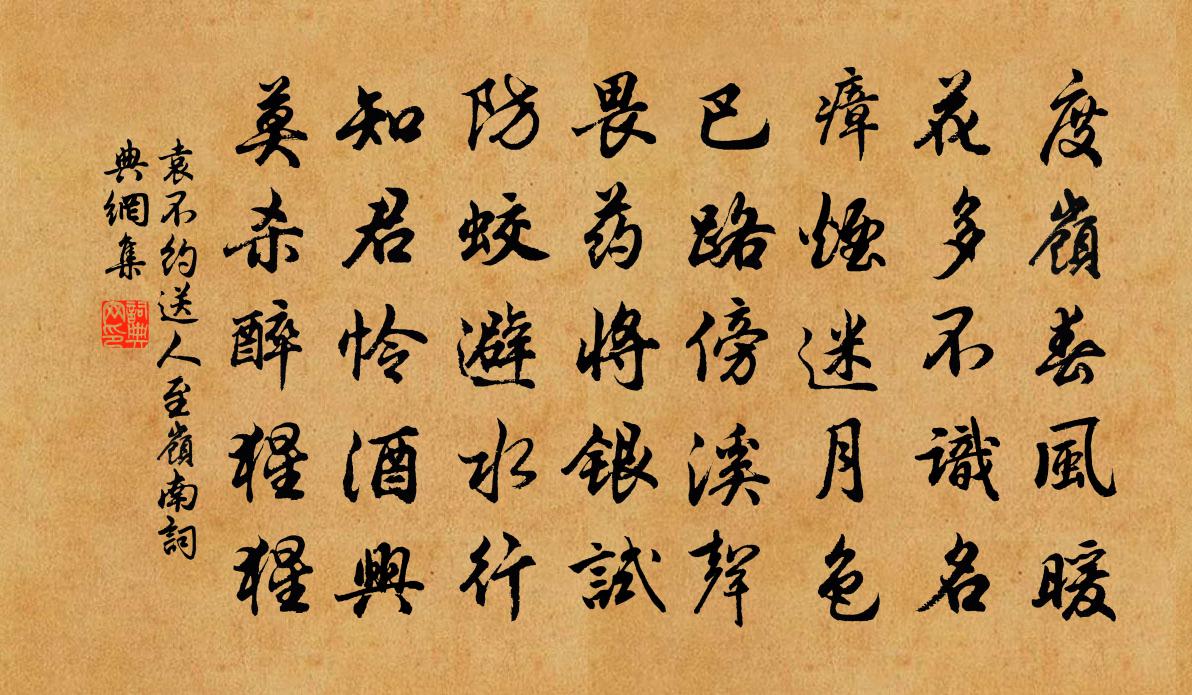 度嶺春風暖
花多不識名
瘴煙迷月色
巴路傍溪聲
畏药將銀試
防蛟避水行
知君怜酒興
莫杀醉猩猩
袁不約送人至嶺南詞
典網集
詞典网印